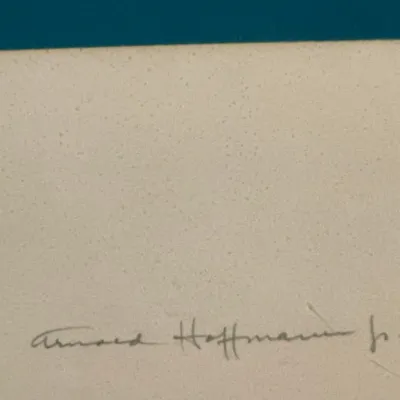 Arnold Hoffmann Jr.